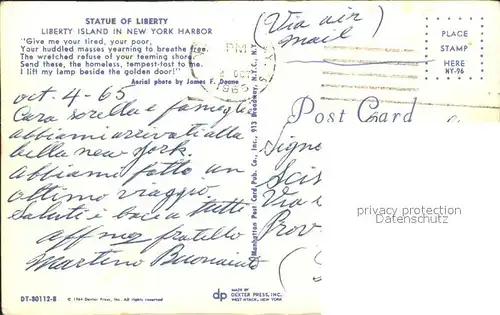 STATUE OF LIBERTY
LIBERTY ISLAND IN NEW YORK HARBOR
"Give me your tired, your poor,
Your huddled masses yearning to breathe free,
The wretched refuse of your teeming shore,
Send these, the homeless, tempest-tost to me.
I lift my lamp beside the golden door!"
Aerial photo by James F. Doane
(Via air
mail)
PM
OCT
1965
PLACE
STAMP
HERE
NY-96
oct. 4-65
Cara sorella e famiglia
abbiamo arrivati alla
bella new york.
abbiamo fatto un
ottimo viaggio
saluti e baci a tutti
affmo fratello
Martino
Manhattan Post Card Pub. Co., Inc., 913 Broadway, N.Y.C., N.Y.
Post Card
Signo
Scis
Via
Prov
privacy protection
DT-80112-B
© 1964 Dexter Press, Inc. All rights reserved
dp
MADE BY
DEXTER PRESS, INC.
WEST NYACK, NEW YORK